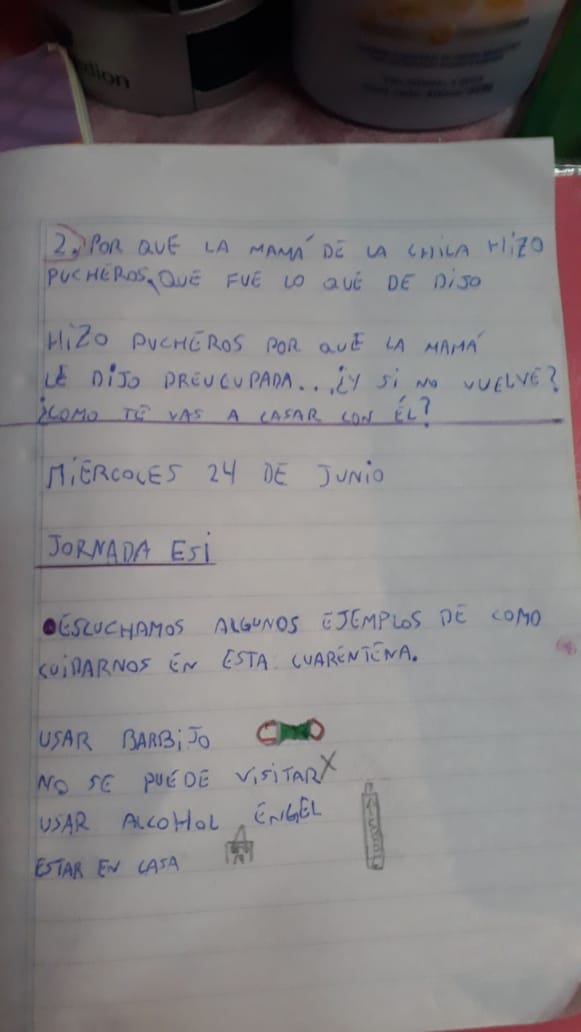 dion
2. POR QUÉ LA MAMÁ DE LA CHICA HIZO
PUCHEROS, QUÉ FUE LO QUÉ DE DIJO
HIZO PUCHEROS POR QUÉ LA MAMÁ
LE DIJO PREUCUPADA... ¿Y SI NO VUELVE?
¿COMO TE VAS A CASAR CON ÉL?
MIÉRCOLES 24 DE JUNIO
JORNADA ESI
ESCUCHAMOS ALGUNOS EJEMPLOS DE COMO
CUIDARNOS EN ESTA CUARENTENA.
USAR BARBIJO
NO SE PUEDE VISITAR X
USAR ALCOHOL ENGEL
ESTAR EN CASA